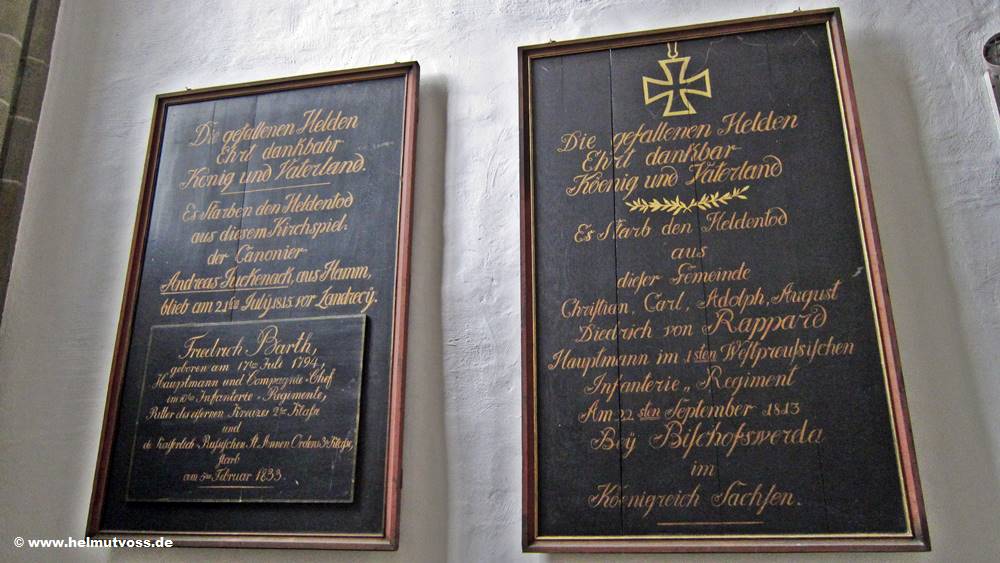 Die gefallenen Helden
Ehrt dankbahr
König und Vaterland.
Es starben den Heldentod
aus diesem Kirchspiel:
der Canonier
Andreas Juckenack, aus Hamm,
blieb am 21ten July, 1815. vor Landrecÿ.
Friedrich Barth,
geboren am 17ten Juli 1794,
Hauptmann und Compagnie-Chef
im Infanterie-Regimente,
Ritter des eisernen Kreuzes 2ter Klaſse
und
de Kaiserlich-Ruſsischen St. Annen Ordens 3r Klaſse,
starb
am 5ten Februar 1833.
Die gefallenen Helden
Ehrt dankbar
Koenig und Vaterland
Es starb den Heldentod
aus
dieſer Gemeinde
Chriſtian, Carl, Adolph, Auguſt
Diedrich von Rappard
Hauptmann im 1sten Weſtpreuſsiſchen
Infanterie „ Regiment
Am 22sten September 1813
Beÿ Biſchofswerda
im
Koenigreich Sachſen.
© www.helmutvoss.de